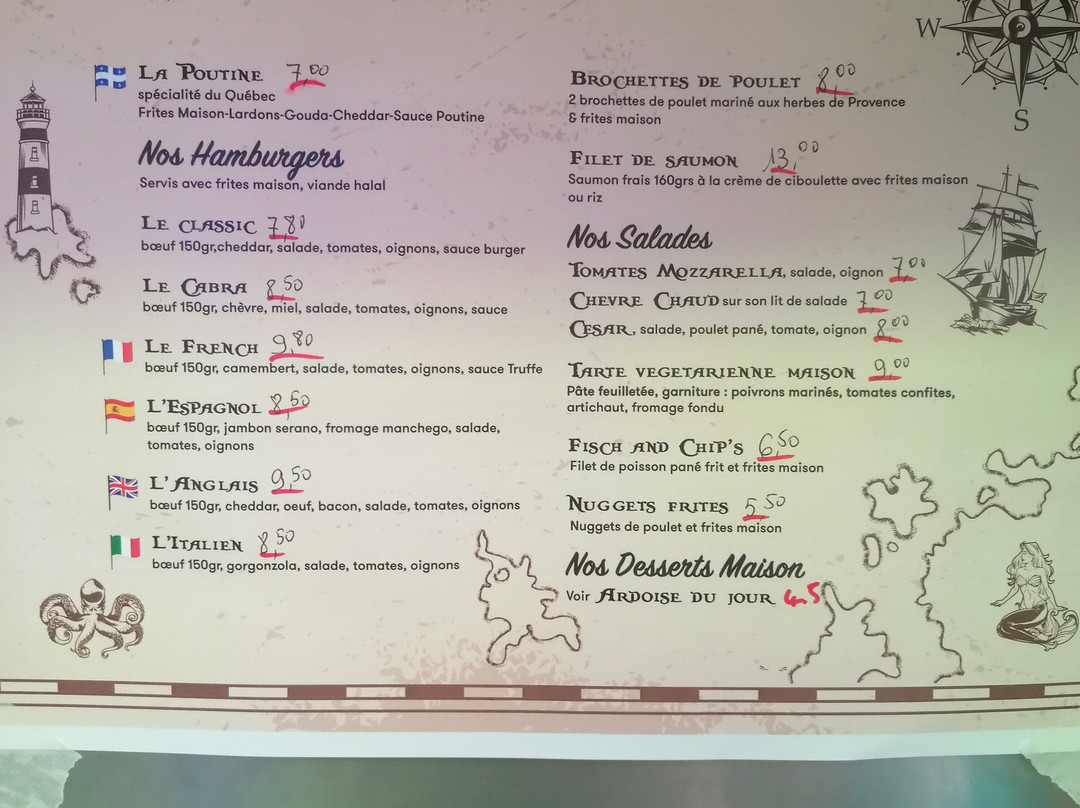 La Poutine 7,00
spécialité du Québec
Frites Maison-Lardons-Gouda-Cheddar-Sauce Poutine
Nos Hamburgers
Servis avec frites maison, viande halal
Le classic 7,80
bœuf 150gr,cheddar, salade, tomates, oignons, sauce burger
Le Cabra 8,50
bœuf 150gr, chèvre, miel, salade, tomates, oignons, sauce
Le French 9,80
bœuf 150gr, camembert, salade, tomates, oignons, sauce Truffe
L'Espagnol 8,50
bœuf 150gr, jambon serano, fromage manchego, salade,
tomates, oignons
L'Anglais 9,50
bœuf 150gr, cheddar, oeuf, bacon, salade, tomates, oignons
L'Italien 8,50
bœuf 150gr, gorgonzola, salade, tomates, oignons
W
S
Brochettes de poulet 8,00
2 brochettes de poulet mariné aux herbes de Provence
& frites maison
Filet de saumon 13,00
Saumon frais 160grs à la crème de ciboulette avec frites maison
ou riz
Nos Salades
Tomates Mozzarella, salade, oignon 7,00
Chevre Chaud sur son lit de salade 7,00
Cesar, salade, poulet pané, tomate, oignon 8,00
Tarte vegetarienne maison 9,00
Pâte feuilletée, garniture : poivrons marinés, tomates confites,
artichaut, fromage fondu
Fisch and Chip's 6,50
Filet de poisson pané frit et frites maison
Nuggets frites 5,50
Nuggets de poulet et frites maison
Nos Desserts Maison
Voir Ardoise du jour 4.5